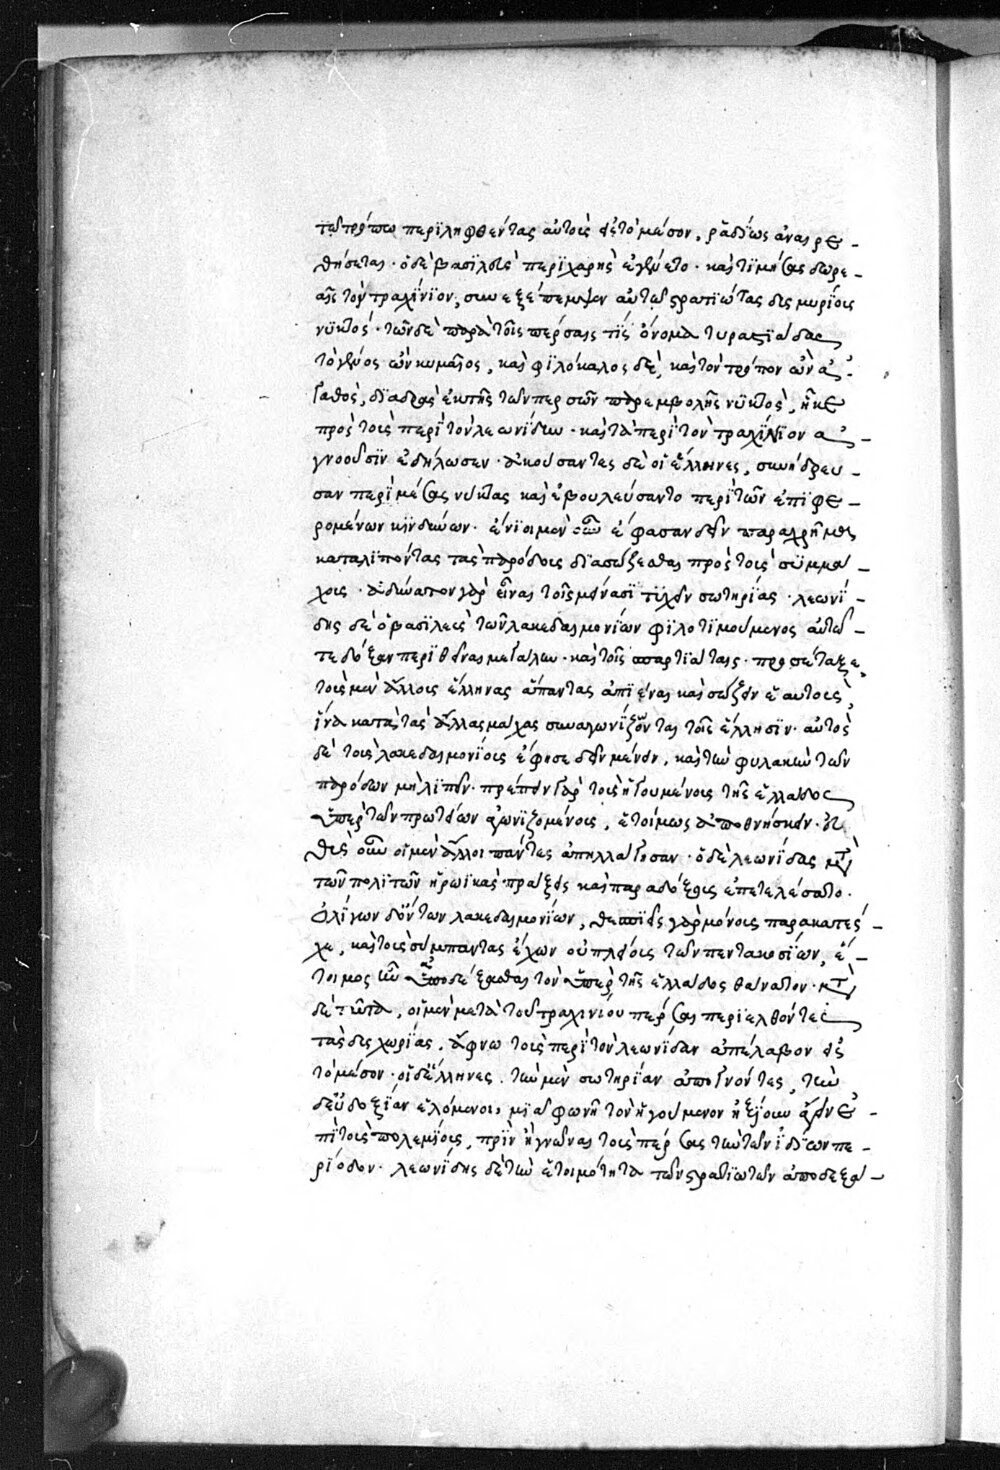 τῶ τρόπω περϊληφθέντας αὐτοὺς εἰς τὸ μέσον, ῥᾳδίως ἀναιρε-
θήσεται· ὁ δὲ βασϊλεὺς περϊχαρὴς ἐγένετο· καὶ τϊμήσας δωρε-
αῖς τὸν τραχίνϊον, συνεξέπεμψεν αὐτῶ στρατϊώτας δισμυρίους
νϋκτός· τῶν δὲ παρὰ τοῖς πέρσαις τίς ὄνομα τυραστϊάδας
τὸ γένος ὢν κυμαῖος, καὶ φϊλόκαλος δὲ, καὶ τὸν τρόπον ὢν ἀ-
γαθὸς, δϊαδρὰς ἐκ τῆς τῶν περσῶν παρεμβολῆς νϋκτὸς, ἧκε
πρὸς τοὺς περὶ τὸν λεωνίδην· καὶ τὰ περὶ τὸν τραχίνιον ἀ-
γνοοῦσϊν ἐδήλωσεν· ἀκούσαντες δὲ οἱ ἕλληνες, συνήδρευ-
σαν περὶ μέσας νύκτας καὶ ἐβουλεύσαντο περὶ τῶν ἐπϊφε-
ρομένων κϊνδύνων· ἔνϊοι μὲν οὖν ἔφασαν δεῖν παραχρῆμα
καταλϊπόντας τὰς παρόδους δϊασώζεσθαι πρὸς τοὺς συμμά-
χους· ἀδύνατον γὰρ εἶναι τοῖς μείνασϊ τϋχεῖν σωτηρίας· λεωνί-
δης δὲ ὁ βασϊλεὺς τῶν λακεδαιμονίων φϊλοτϊμούμενος αὐτῶ
τε δόξαν περϊθεῖναι μεγάλην· καὶ τοῖς σπαρτϊάταις· προσέταξε
τοὺς μὲν ἄλλους ἕλληνας ἅπαντας ἀπϊέναι καὶ σώζειν ἑαυτοὺς,
ἵνα κατὰ τὰς ἄλλας μάχας συναγωνίζωνται τοῖς ἕλλησϊν· αὐτοὺς
δὲ τοὺς λακεδαιμονίους ἔφησε δεῖν μένειν, καὶ τὴν φυλακὴν τῶν
παρόδων μὴ λϊπεῖν· πρέπειν γὰρ τοὺς ἡγουμένους τῆς ἑλλάδος
ὑπὲρ τῶν πρωτείων ἀγωνϊζομένους, ἑτοίμως ἀποθνήσκειν· εὐ-
θὺς οὖν οἱ μὲν ἄλλοι πάντες ἀπηλλάγησαν· ὁ δὲ λεωνίδας μετὰ
τῶν πολϊτῶν ἡρωϊκὰς πράξεις καὶ παραδόξους ἐπετελέσατο·
ὀλίγων δ' ὄντων λακεδαιμονίων, θεσπϊεῖς γὰρ μόνους παρακατέσ-
χε, καὶ τοὺς σύμπαντας ἔχων οὐ πλείους τῶν πεντακοσίων, ἕ-
τοιμος ἦν ὑποδέξασθαι τὸν ὑπὲρ τῆς ἑλλάδος θάνατον· μετὰ
δὲ ταῦτα, οἱ μὲν μετὰ τοῦ τραχινίου πέρσαι περϊελθόντες
τὰς δυσχωρίας, ἄφνω τοὺς περὶ τὸν λεωνίδην ἀπέλαβον εἰς
τὸ μέσον· οἱ δ' ἕλληνες, τὴν μὲν σωτηρίαν ἀπογνόντες, τὴν
δ' εὐδοξίαν ἑλόμενοι, μϊᾷ φωνῆ τὸν ἡγούμενον ἠξίουν ἄγειν ἐ-
πὶ τοὺς πολεμίους, πρὶν ἢ γνῶναι τοὺς πέρσας τὴν τῶν ἰδίων πε-
ρϊόδον· λεωνίδης δὲ τὴν ἑτοιμότητα τῶν στρατϊωτῶν ἀποδεξά-